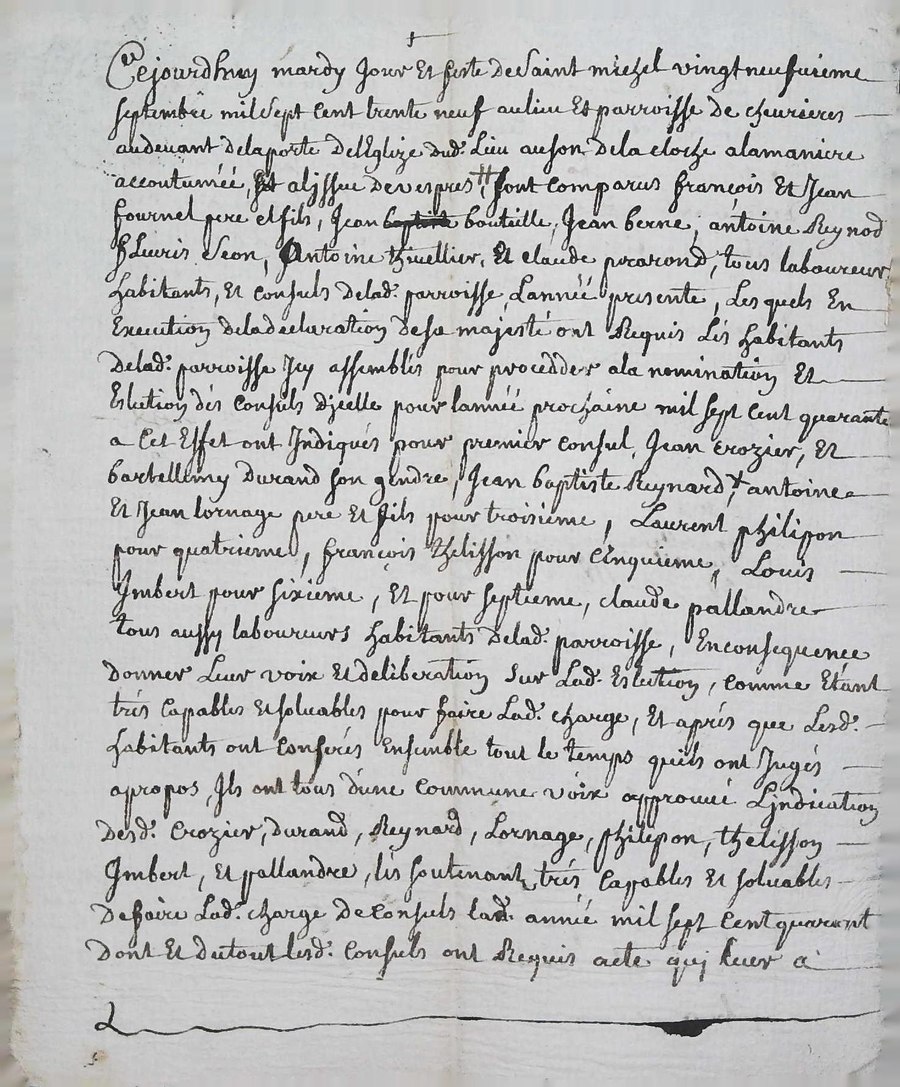 Cejourdhuy mardy Jour Et feste de Saint michel vingt neufvieme
septembre mil sept cent trente neuf au lieu Et parroisse de cheurieres
au devant de la porte de lEglize dud. Lieu au son de la cloche a la maniere
accoutumée, Et a lyssue de vespres, sont comparus françois Et Jean
fournel pere et fils, Jean bouteille, Jean berne, antoine Reynod
fleuris Seon, Antoine thivellier, Et claude prarond, tous laboureur
habitants, Et consuls de lad. parroisse Lannéé presente, Les quels En
Execution de la declaration de sa majesté ont Requis Les habitants
de lad. parroisse Icy assemblés pour procedder a la nomination Et
Eslection des consuls d'jcelle pour lannéé prochaine mil sept cent quarante
a Cet Effet ont Indiqués pour premier consul, Jean crozier, Et
bartellemy Durand son gendre, Jean baptiste Reynard, antoine
Et Jean lornage pere Et fils pour troisieme, Laurent philipon
pour quatrieme, françois thelisson pour Cinquieme, Louis
Imbert pour sixieme, Et pour septieme, claude pallandre
tous aussy laboureurs habitants de lad. parroisse, En consequence
donner Leur voix Et deliberation sur Lad. Eslection, comme Etant
trés Capables Et soluables pour faire Lad. charge, Et aprés que Lesd.
habitants ont Conferés Ensemble tout le temps quils ont Jugés
apropos, Ils ont tous d'une commune voix approuué Ljndication
desd. Crozier, durand, Reynard, Lornage, philipon, thelisson
Imbert, Et pallandre, les soutenant trés Capables Et soluables
de faire Lad. charge de consuls lad. année mil sept Cent quarant
Dont Et du tout lesd. Consuls ont Requis acte quj leur a